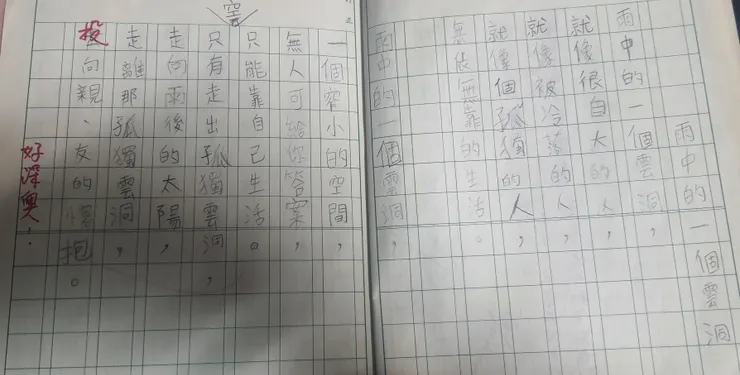 雨中的一個雲洞
雨中的一個雲洞，
就像很自大的人，
就像被冷落的人，
就像個孤獨的人，
無依無靠的生活。
雨中的一個雲洞，
窄
一個窄小的空間，
無人可給你答案，
只能靠自己生活。
只有走出孤獨雲洞，
走向雨後的太陽，
走離那孤獨雲洞，
投向親、友的懷抱。
好深奧！